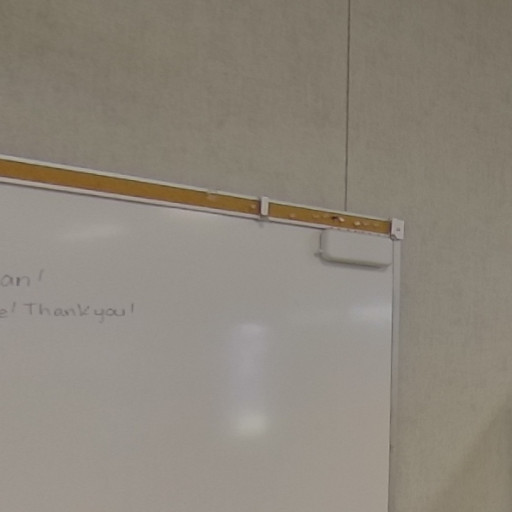 an!
e! Thank you!